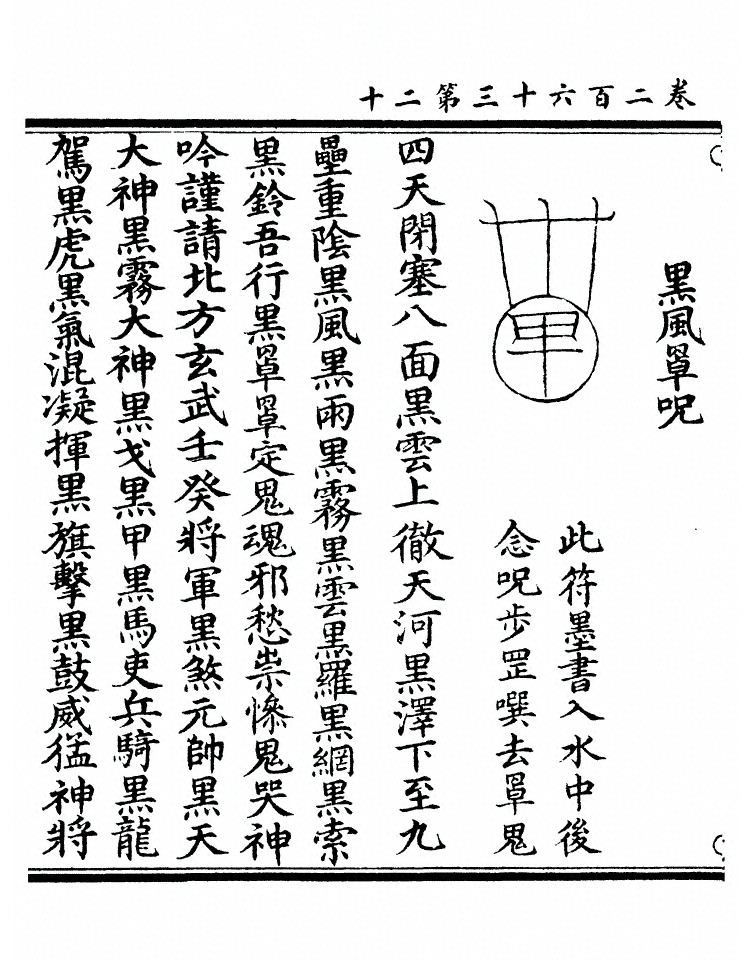 卷二百六十三第二十
黑風罩呪
此符墨書入水中後
念呪步罡噀去罩鬼
四天閉塞八面黑雲上徹天河黑澤下至九
壘重陰黑風黑雨黑霧黑雲黑羅黑網黑索
黑鈴吾行黑罩罩定鬼魂邪愁祟慘鬼哭神
吟謹請北方玄武壬癸將軍黑煞元帥黑天
大神黑霧大神黑戈黑甲黑馬吏兵騎黑龍
駕黑虎黑氣混凝揮黑旗擊黑鼓威猛神將